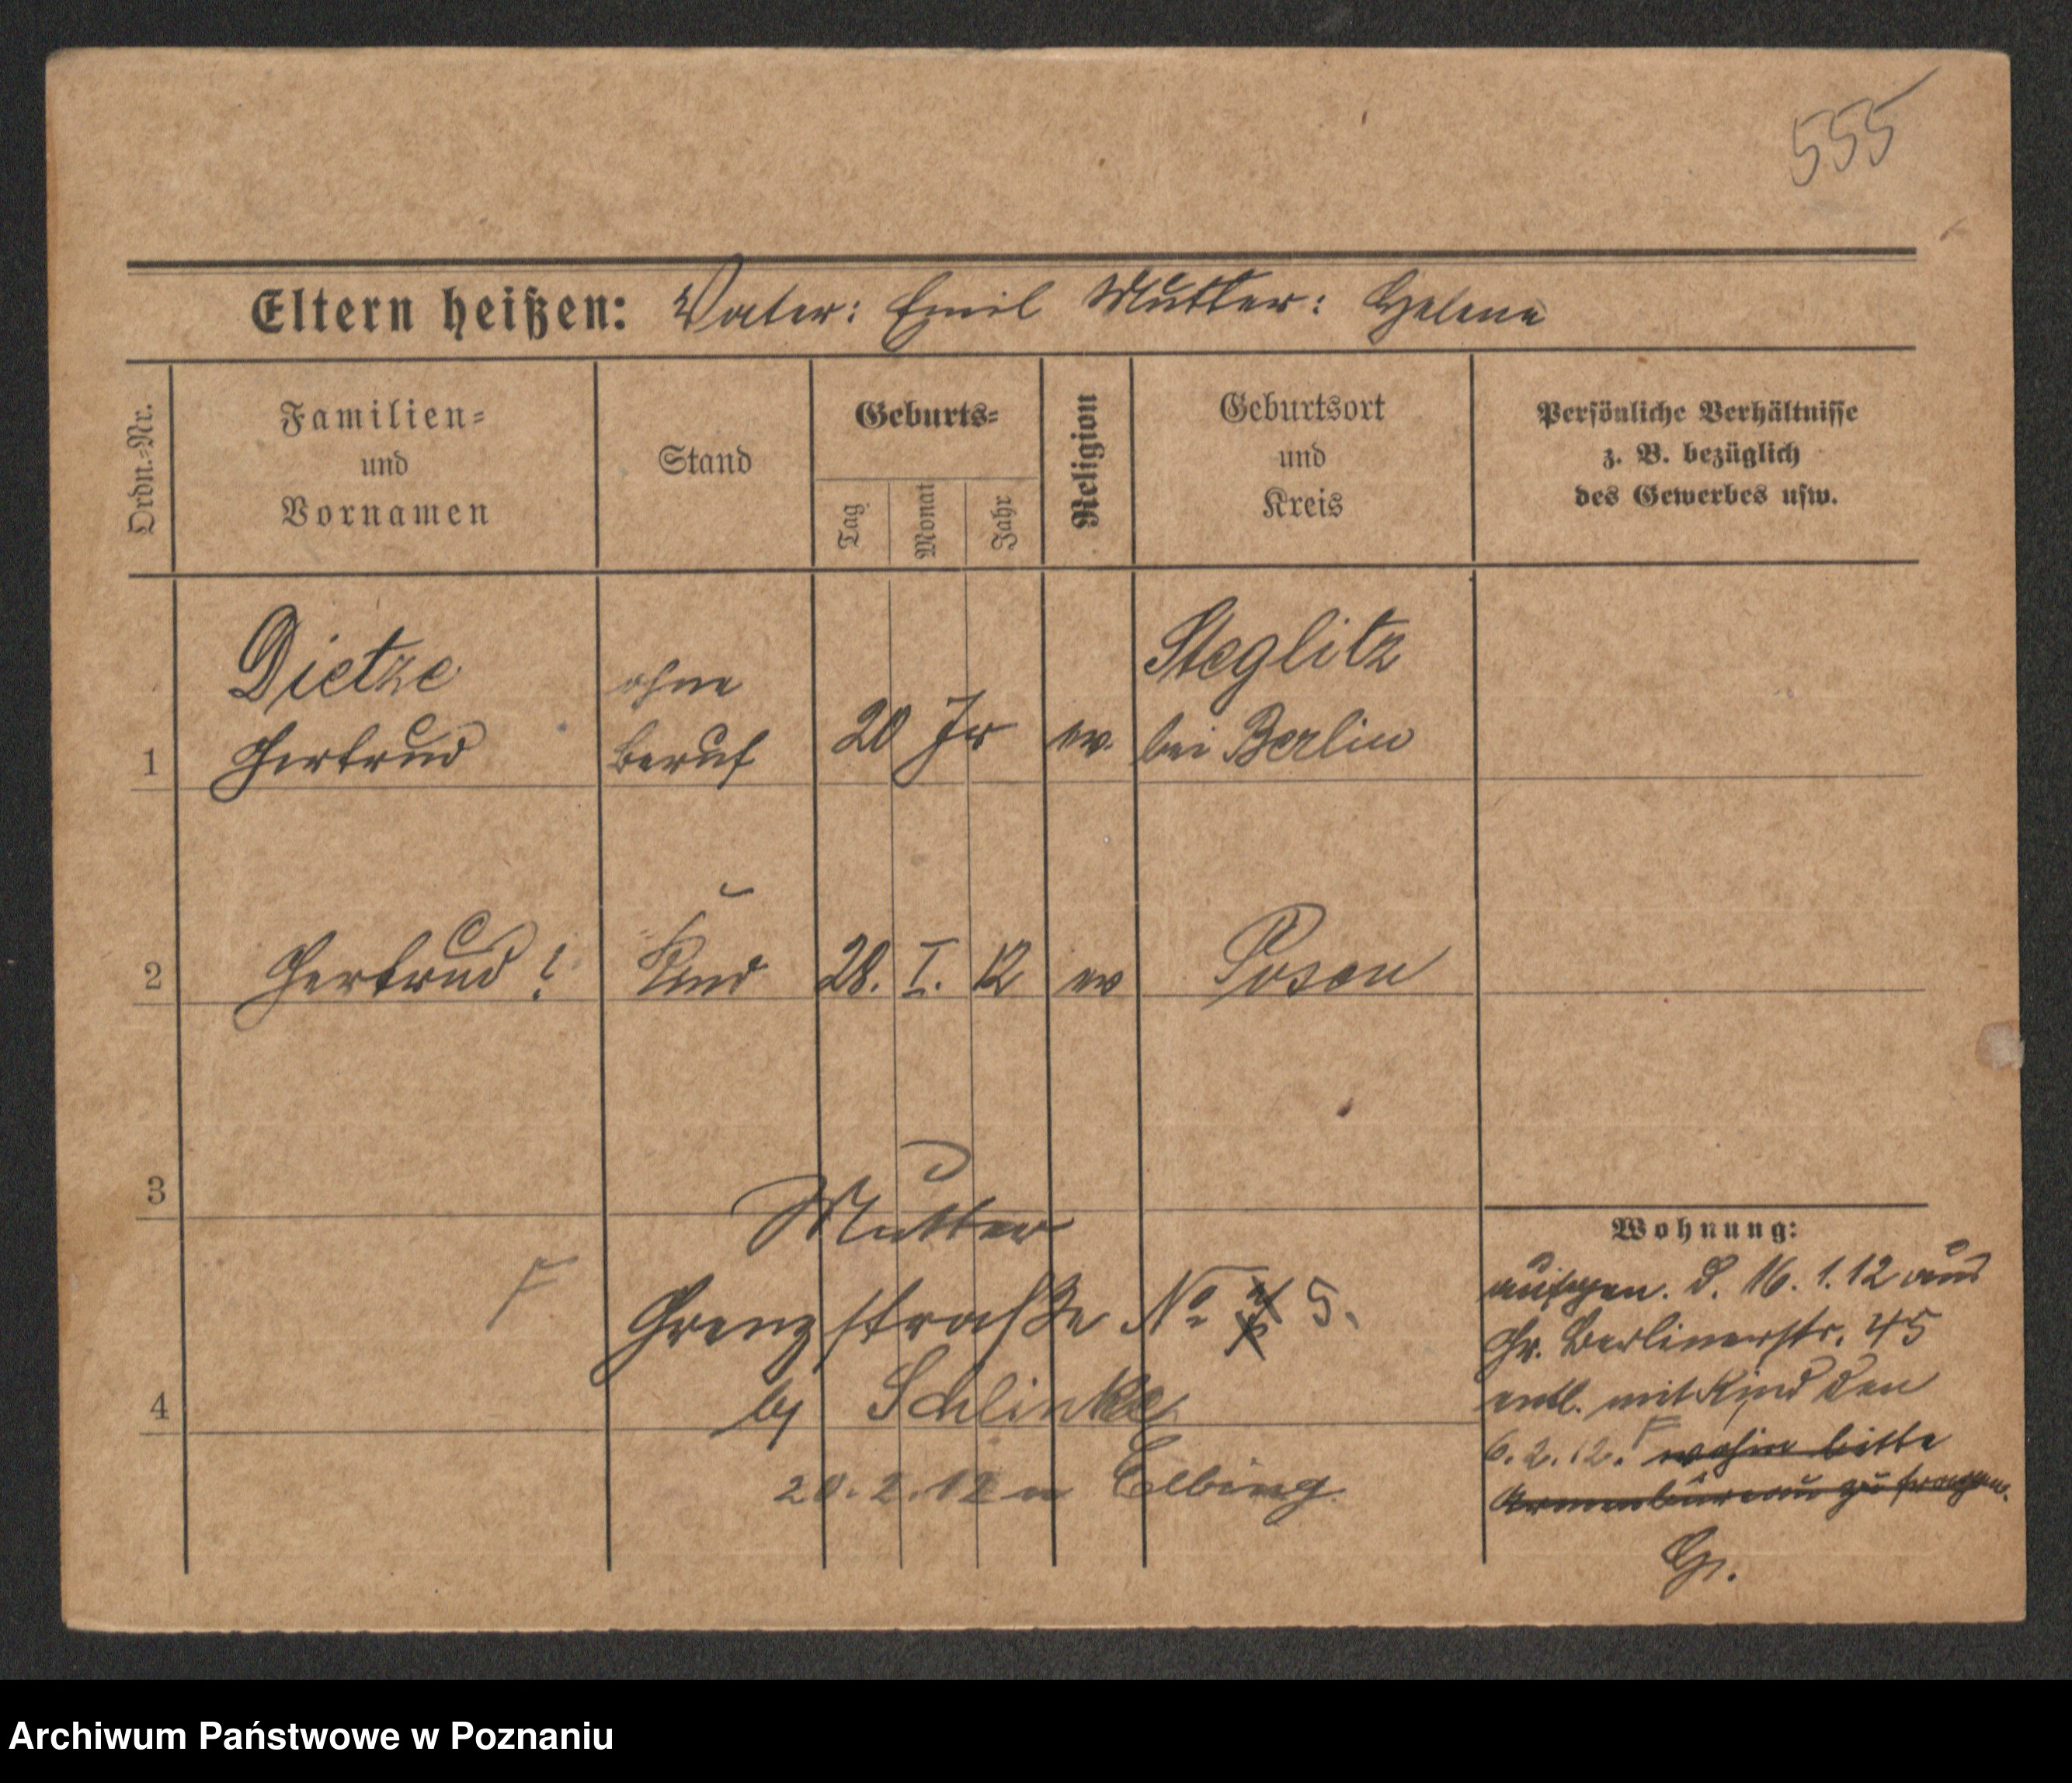 555
Eltern heißen: Vater: Emil Mutter: Helene
Ordn.=Nr.
Familien=
und
Vornamen
Stand
Geburts=
Tag
Monat
Jahr
Religion
Geburtsort
und
Kreis
Persönliche Verhältnisse
z. B. bezüglich
des Gewerbes usw.
Dietze ohne Steglitz
1 Gertrud Beruf 20 Jr ev. bei Berlin
2 Gertrud ! Kind 28. I. 12 ev Posen
3
Mutter
F Grenzstraße No 5.
4 bj Schlinke
20.2.12 n Elbing
Wohnung:
aufgen. d. 16. 1. 12 aus
Gr. Berlinerstr. 45
entl. mit Kind den
6. 2. 12. F wohin bitte
Armenbüreau zu fragen.
Gr.
Archiwum Państwowe w Poznaniu